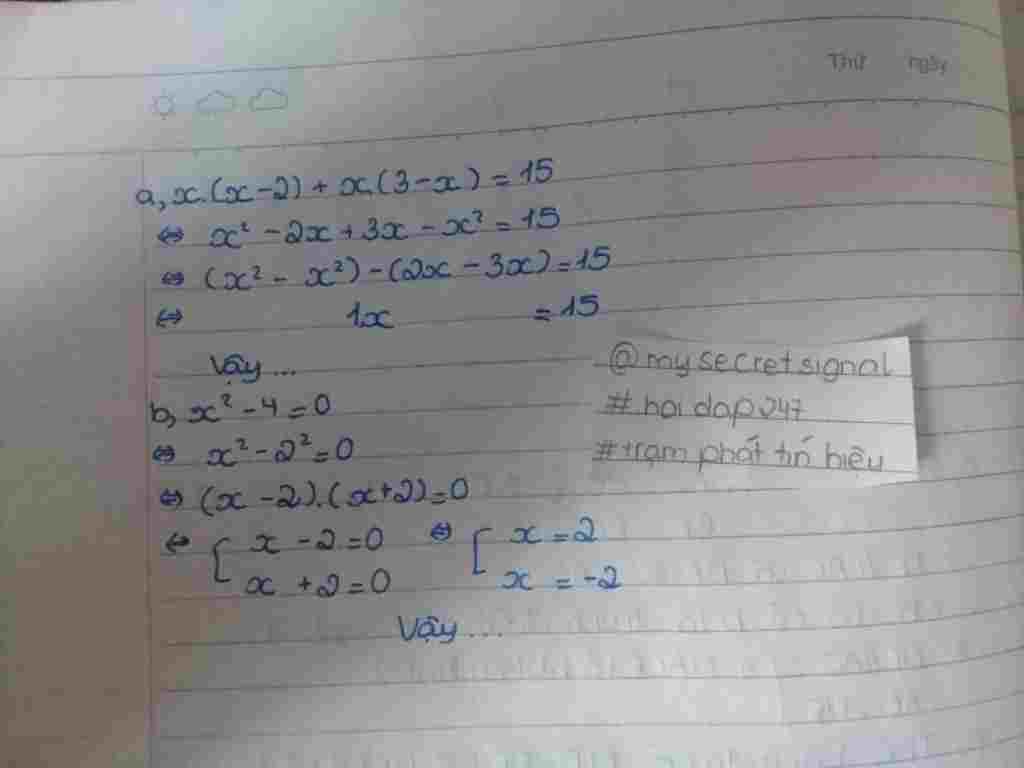 Thứ ngày
a, x.(x-2) + x.(3-x) = 15
⇔ x² - 2x + 3x - x² = 15
⇔ (x² - x²) - (2x - 3x) = 15
⇔ 1x = 15
Vậy...
@mysecretsignal
#hoidap247
#trạm phát tín hiệu
b, x² - 4 = 0
⇔ x² - 2² = 0
⇔ (x - 2).(x+2) = 0
⇔ [ x - 2 = 0 ⇔ [ x = 2
x + 2 = 0 x = -2
Vậy...